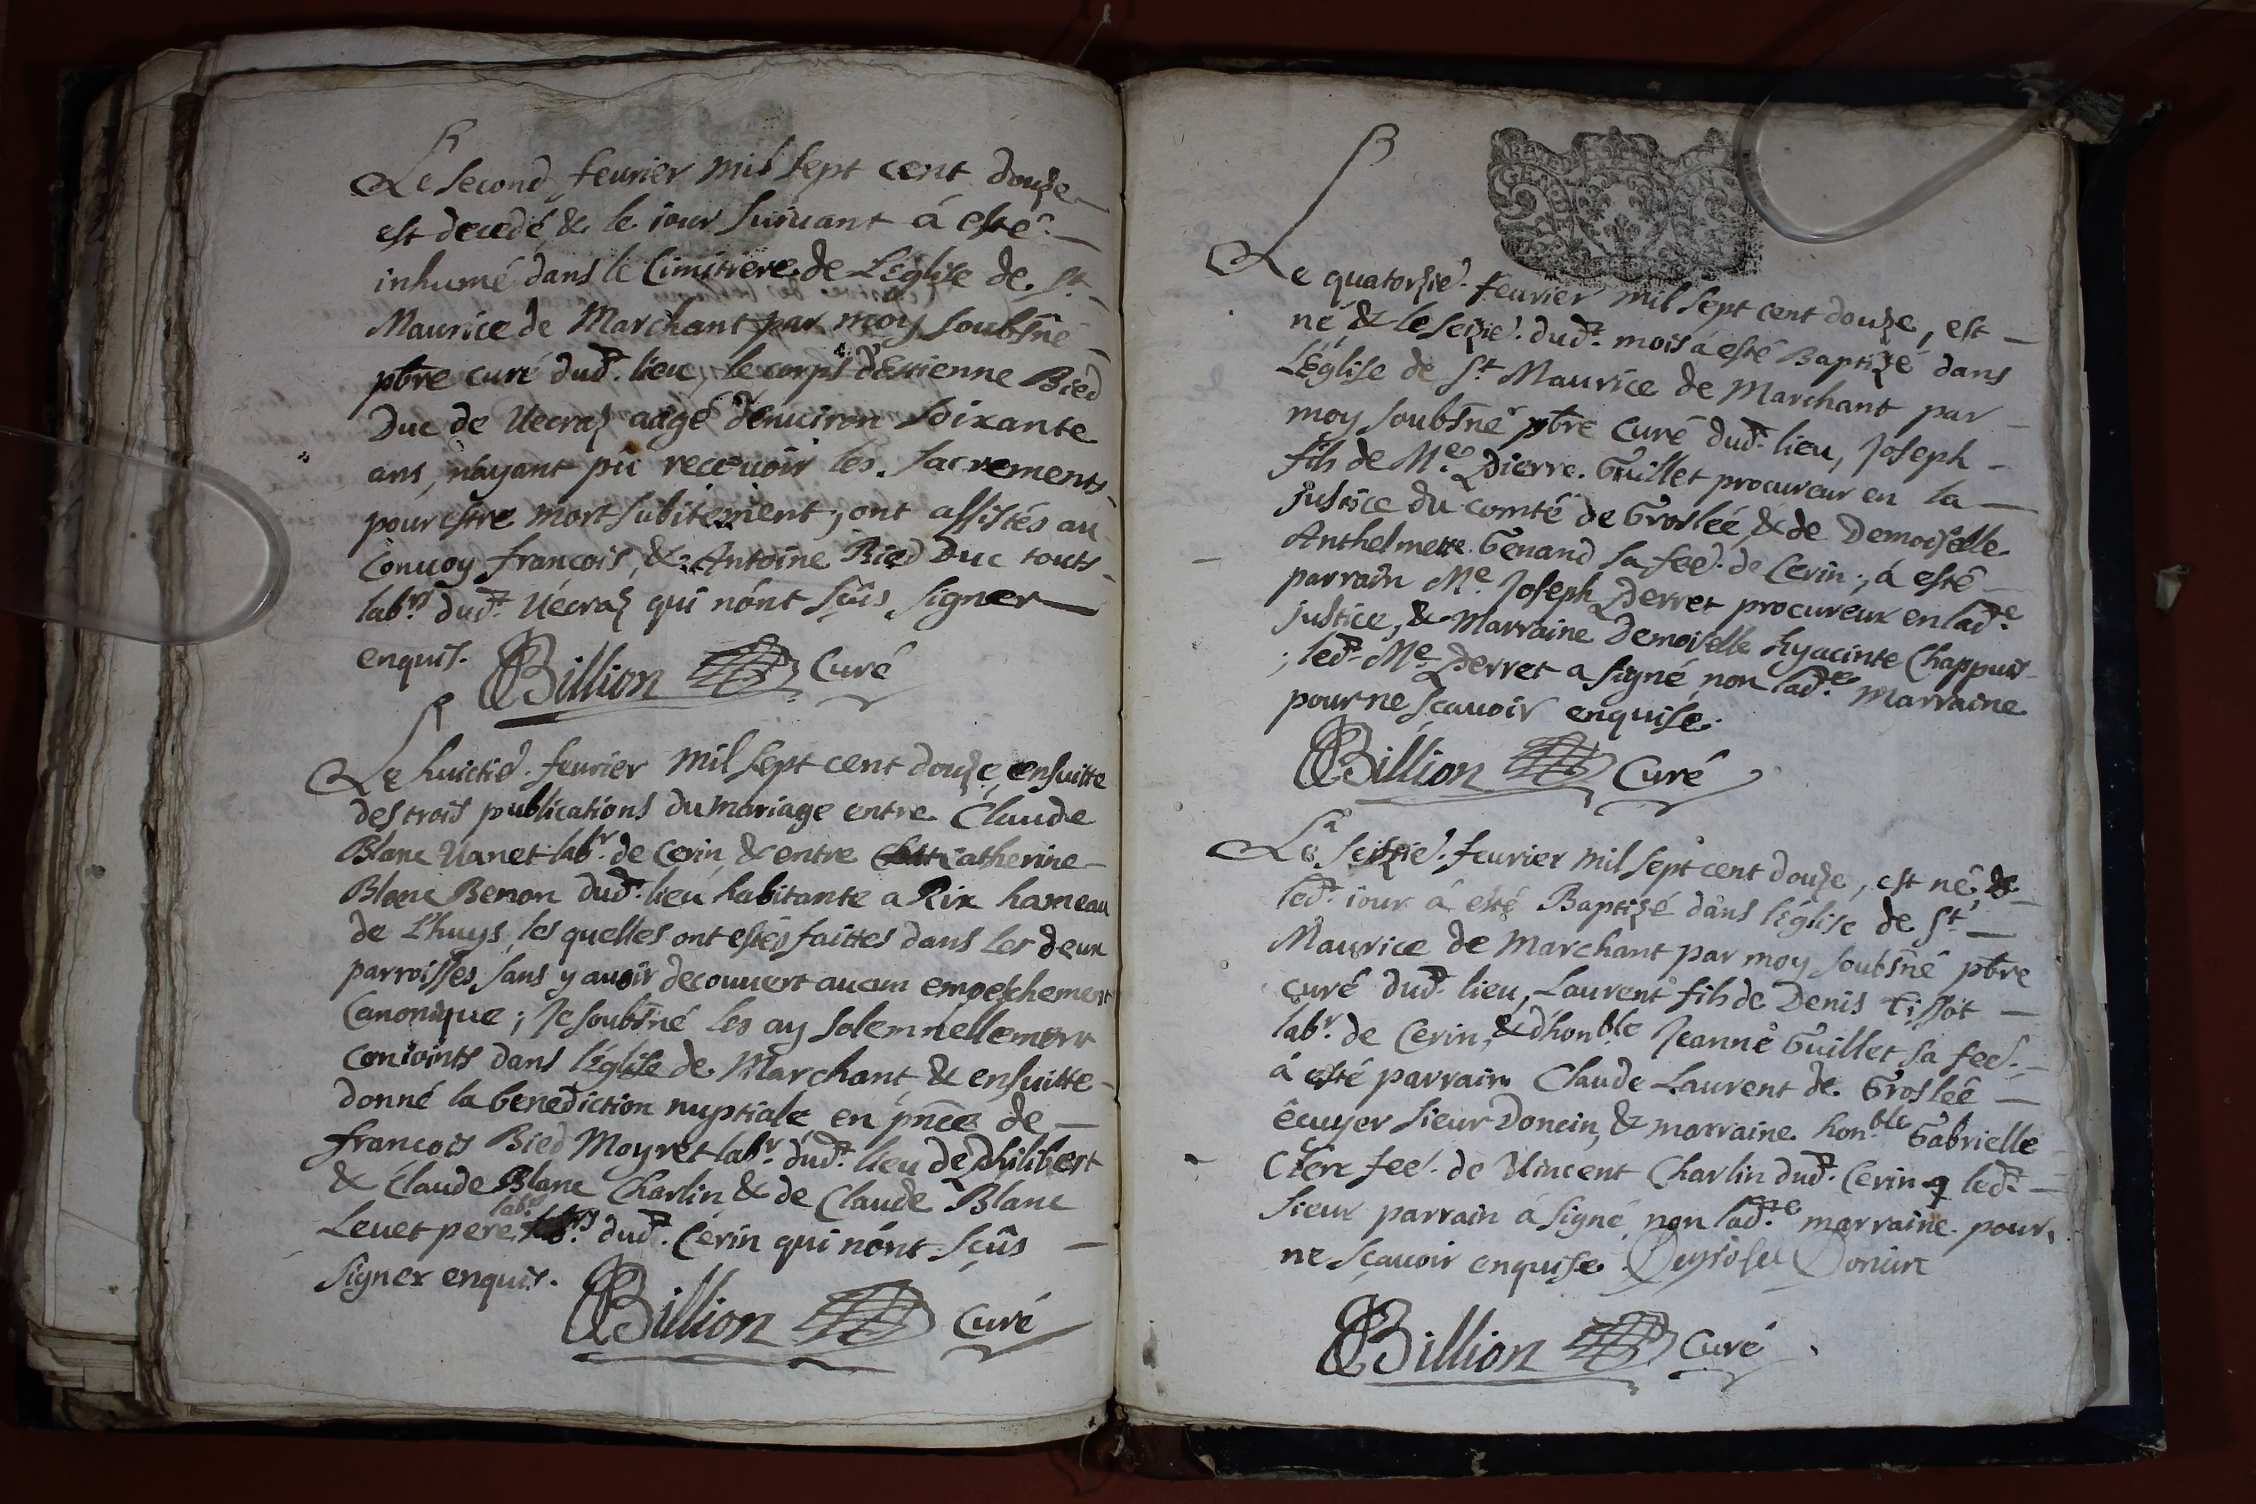 Le second feurier mil sept cent douze
est decedé & le iour suiuant á esté
inhumé dans le Cimitiere de L'Eglise de St
Maurice de Marchant par moy soubsné
pbre curé dud. lieu, le corps d'Etienne Bied
Duc de Uecraz aagé denuiron soixante
ans, n'ayant pú receuoir les sacrements
pour estre mort subitement; ont assistés au
Conuoy francois, & Antoine Bied Duc touts
labrs dud. Uécraz qui nónt sçûs signer
enquis. Billion Curé
Le huictie. feurier mil sept cent douze ensuitte
des trois publications du mariage entre Claude
Blanc Uanet labr. de Cerin & entre Catherine
Blanc Benon dud. lieu habitante a Rix hameau
de Lhuys, les quelles ont estés faittes dans les deux
parroisses, sans y auoir decouuert aucun empeschement
Canonique; Je soubsné les ay solemnellement
conioints dans l'Eglise de Marchant & ensuitte
donné la benediction nuptiale en pnce de
francois Bied Moyret labr. dud. lieu de Philibert
& Claude Blanc Charlin & de Claude Blanc
Leuet pere labrs dud. Cérin qui nónt sçûs
signer enquis.
Billion Curé
Le quatorzie. feurier mil sept cent douze, est
né & le seizie. dud. mois á esté Baptizé dans
L'Eglise de St Maurice de Marchant par
moy soubsné pbre Curé dud. lieu, Joseph
fils de Me. Pierre Guillet procureur en la
justice du comté de Groslée, & de Demoiselle
Anthelmette Genand sa fee. de Cerin; á esté
parrain Me. Joseph Perret procureur en lade.
justice, & Marraine Demoiselle hyacinte Chappuis
; led. Me Perret a signé, non lade. Marraine
pour ne sçauoir enquise.
Billion Curé
Le seizie. feurier mil sept cent douze, est né, &
led. iour á esté Baptizé dans l'Eglise de St
Maurice de Marchant par moy soubsné pbre
curé dud. lieu, Laurent fils de Denis tissot
labr. de Cerin, & dhonble Jeanne Guillet sa fee.
á esté parrain Claude Laurent de Groslée
êcuyer sieur Doncin, & marraine honble Gabrielle
Clerc fee. de Uincent Charlin dud. Cerin led.
sieur parrain á signé, non lade. marraine pour
ne sçauoir enquise
Billion Curé